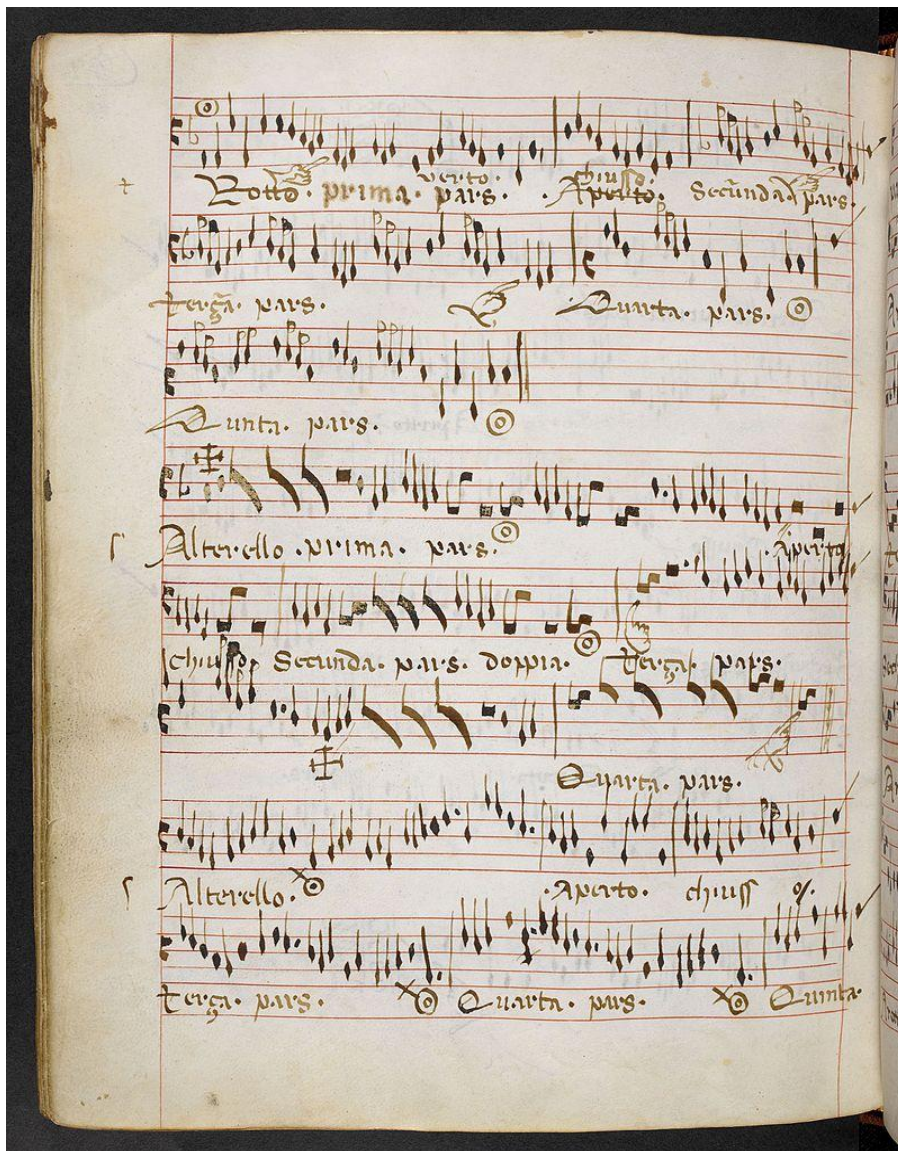 Rotto. prima. pars. verto. Aperto. chiusso. Secunda. pars.
Terça. pars. Quarta. pars.
Quinta. pars.
Alterello. prima. pars. Aperto
chiusso Secunda. pars. doppia. Terça. pars.
Quarta. pars.
Alterello. Aperto. chiuss
Terça. pars. Quarta. pars. Quinta.